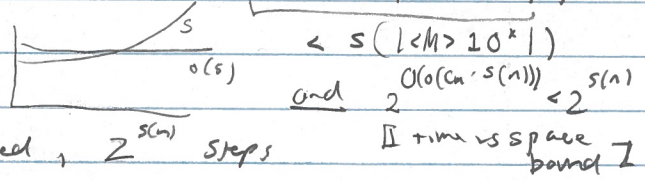 S
o(s)
< S(|<M> 10^x|)
and 2^O(o(Cm · S(n))) < 2^S(n)
ed, 2^S(n) steps
[ time vs space
bound ]